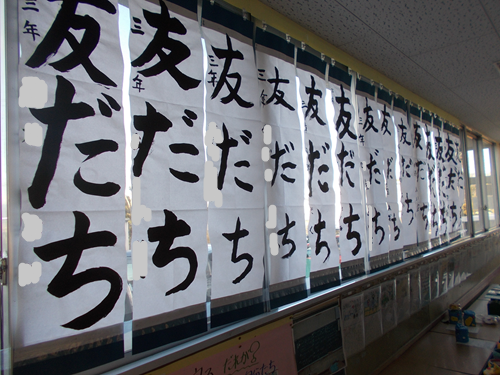 友だち
三年
友だち
三年
友だち
三年
友だち
三年
友だち
友だち
友だち
友だち
友だち
友だち
友だち
友だち
友だち